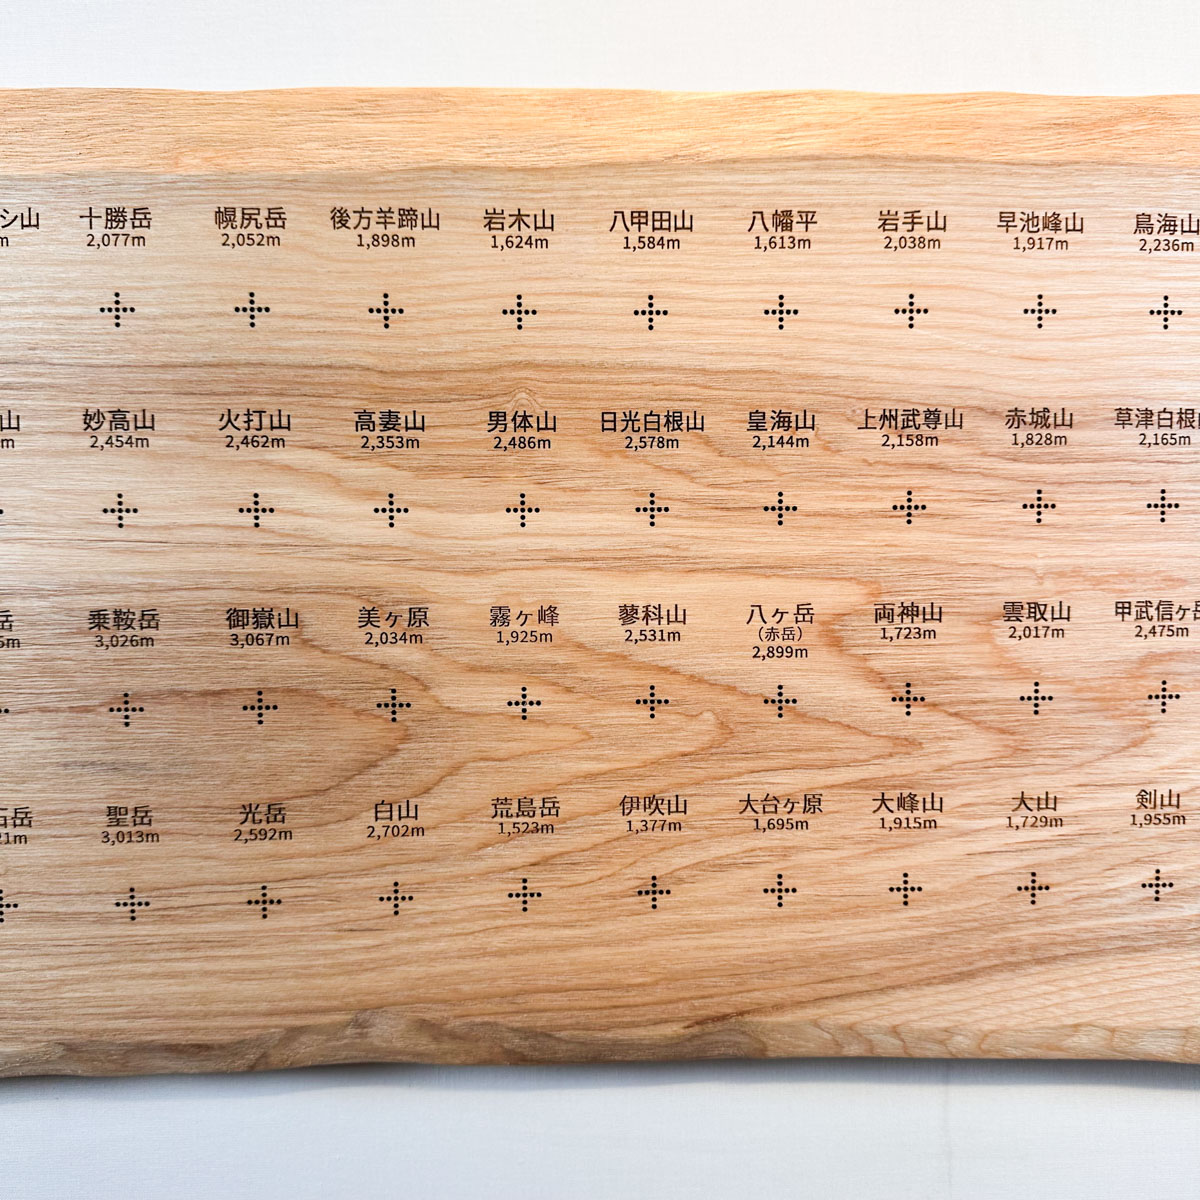 シ山 十勝岳 幌尻岳 後方羊蹄山 岩木山 八甲田山 八幡平 岩手山 早池峰山 鳥海山
m 2,077m 2,052m 1,898m 1,624m 1,584m 1,613m 2,038m 1,917m 2,236m
山 妙高山 火打山 高妻山 男体山 日光白根山 皇海山 上州武尊山 赤城山 草津白根
m 2,454m 2,462m 2,353m 2,486m 2,578m 2,144m 2,158m 1,828m 2,165m
岳 乗鞍岳 御嶽山 美ヶ原 霧ヶ峰 蓼科山 八ヶ岳 両神山 雲取山 甲武信ヶ岳
5m 3,026m 3,067m 2,034m 1,925m 2,531m (赤岳) 1,723m 2,017m 2,475m
2,899m
石岳 聖岳 光岳 白山 荒島岳 伊吹山 大台ヶ原 大峰山 大山 剣山
21m 3,013m 2,592m 2,702m 1,523m 1,377m 1,695m 1,915m 1,729m 1,955m